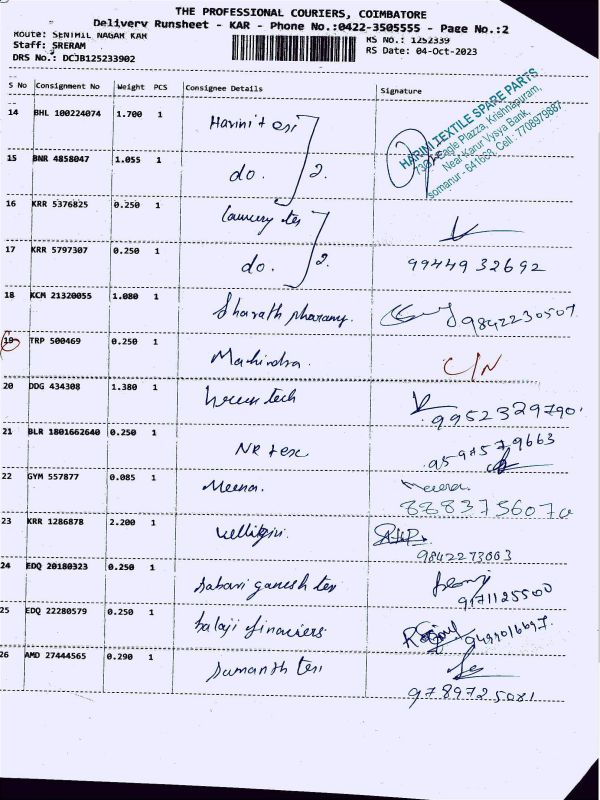 THE PROFESSIONAL COURIERS, COIMBATORE
Delivery Runsheet - KAR - Phone No.:0422-3505555 - Page No.:2
Route: SENTHIL NAGAR KAR
RS No.: 1252339
Staff: SRERAM
RS Date: 04-Oct-2023
DRS No.: DCJB125233902
S No Consignment No Weight PCS Consignee Details Signature
14 BHL 100224074 1.700 1 Harini tex
HARINI TEXTILE SPARE PARTS
Eagle Plazza, Krishnapuram,
Near Karur Vysya Bank,
somanur - 641668, Cell : 7708979887
15 BNR 4858047 1.055 1 do. 2.
16 KRR 5376825 0.250 1 tex
17 KRR 5797307 0.250 1 do. 2. 99449 32692
18 KCM 21320055 1.080 1 Sharath pharamy. 9842230507
19 TRP 500469 0.250 1 Mahindra. C/N
20 DDG 434308 1.380 1 tech 9952329790
21 BLR 1801662640 0.250 1 NR tex
22 GYM 557877 0.085 1 Meena. Meena
23 KRR 1286878 2.200 1 vellingiri. 9842273663
24 EDQ 20180323 0.250 1 Sabari ganesh tex 9171125500
25 EDQ 22280579 0.250 1 balaji financiers
26 AMD 27444565 0.290 1 Sumanth tex 9789725081